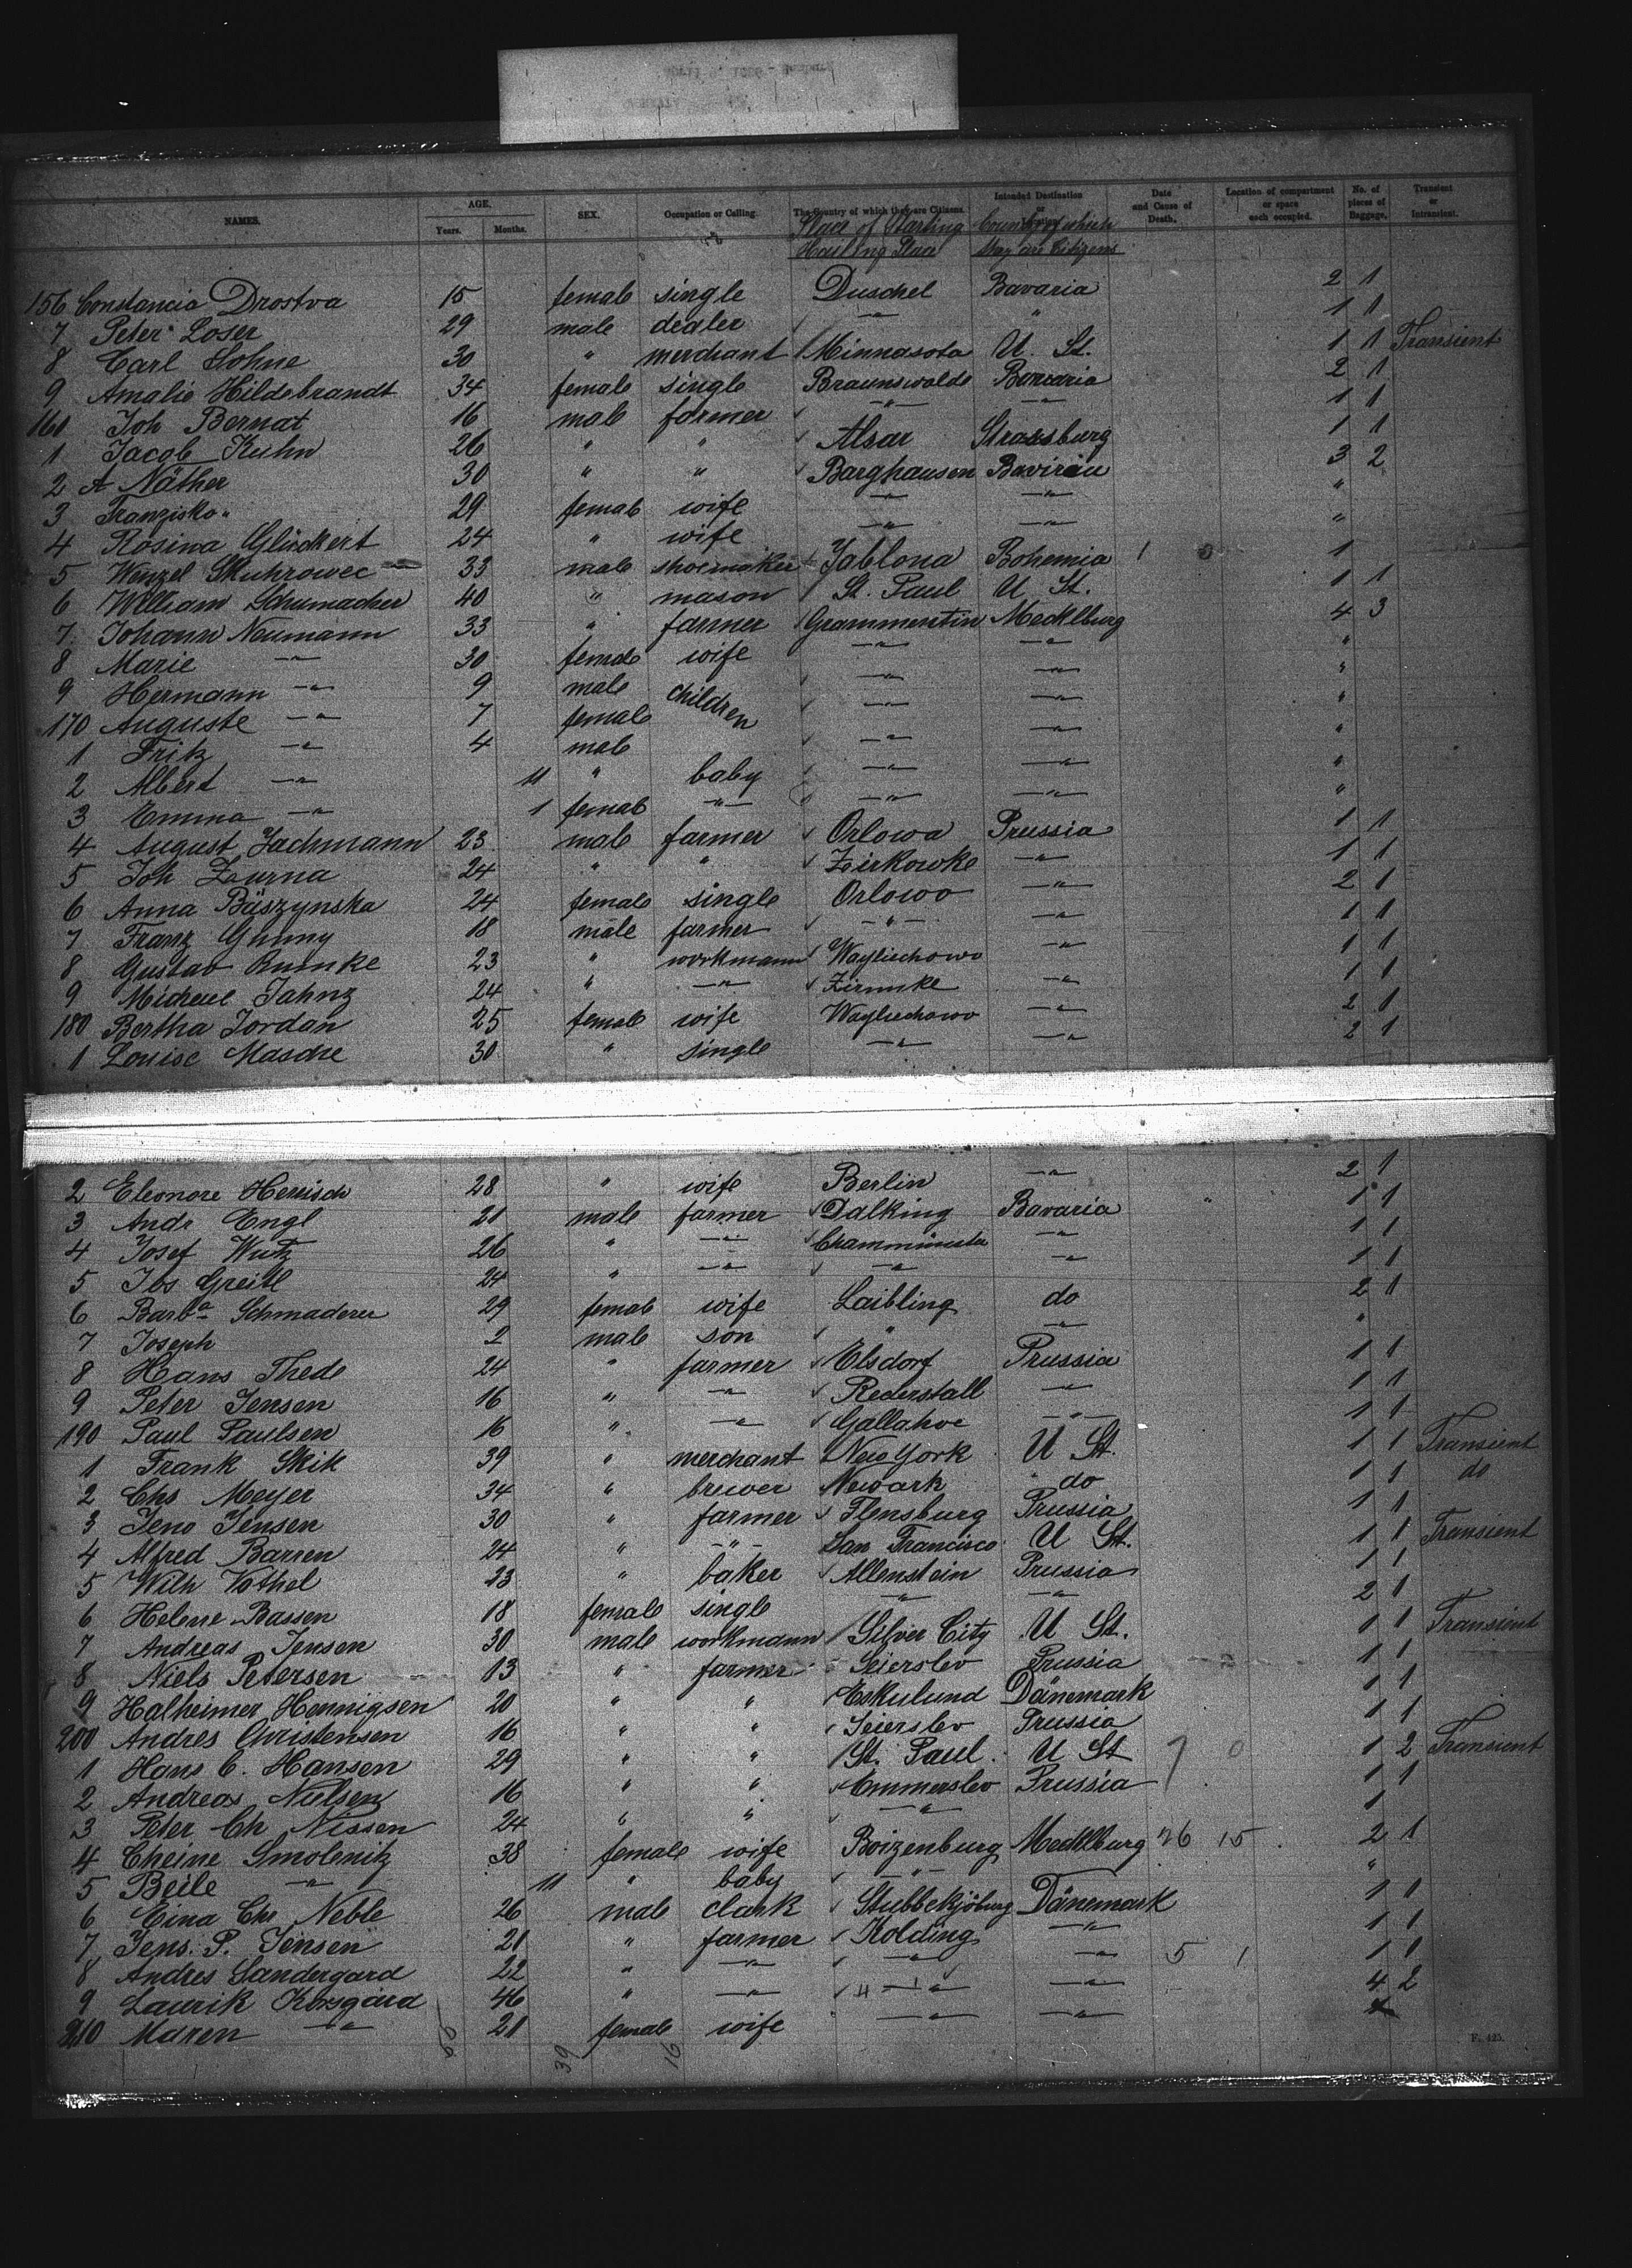 NAMES. AGE. Years. Months. SEX. Occupation or Calling. The Country of which they are Citizens. Intended Destination or Location. Date and Cause of Death. Location of compartment or space each occupied. No. of pieces of Baggage. Transient or Intransient.
Place of Starting Country of which
Hailing Place they are Citizens
156 Constancia Drostva 15 female single Duschel Bavaria 2 1
7 Peter Loser 29 male dealer —"— " 1 1
8 Carl Sohne 30 " merchant Minnasota U. St. 1 1 Transient
9 Amalie Hildebrandt 34 female single Braunswalde 2 1
160 Joh Bernat 16 male farmer —"— —"— 1 1
1 Jacob Kuhn 26 " " Alsar Strassburg 1 1
2 A Näther 30 " " Barghausen 3 2
3 Franzisko " 29 female wife —"— —"— "
4 Rosina Glückert 24 " wife —"— —"— "
5 Wenzel Skuhrowec 33 male shoemaker Jablona Bohemia 1 0 1
6 William Schumacher 40 " mason St. Paul U St. 1 1
7 Johann Neumann 33 " farmer Grammentin Mecklburg 4 3
8 Marie —"— 30 female wife —"— —"— "
9 Hermann —"— 9 male children —"— —"— "
170 Auguste —"— 7 female —"— —"— "
1 Fritz —"— 4 male —"— —"— "
2 Albert —"— 11 " baby —"— —"— "
3 Emma —"— 1 female —"— —"— —"— "
4 August Jachmann 23 male farmer Orlowa Prussia 1 1
5 Joh Zaurna 24 " " Zirkowke —"— 1 1
6 Anna Büszynska 24 female single Orlowo —"— 2 1
7 Franz 18 male farmer —"— —"— 1 1
8 Gustav Rumke 23 " workmann —"— 1 1
9 Jahnz 24 " —"— Zirmke —"— 1 1
180 Bertha Jordan 25 female wife —"— 2 1
1 Louise Masche 30 " single —"— —"— 2 1
2 Eleonore Hensch 28 " wife Berlin —"— 2 1
3 Andr Engl 21 male farmer Dalking Bavaria 1 1
4 Josef Wutz 26 " —"— Chammünster —"— 1 1
5 Jos Greitl 24 " —"— —"— —"— 1 1
6 Barba Schmaderer 29 female wife Laibling do 2 1
7 Joseph 2 male son " —"— "
8 Hans Thede 24 " farmer Elsdorf Prussia 1 1
9 Peter Jensen 16 " —"— Rederstall —"— 1 1
190 Paul Paulsen 16 " —"— Gallahoe —"— 1 1
1 Frank Skik 39 " merchant New York U St. 1 1 Transient
2 Chs Meyer 34 " brewer Newark do 1 1 do
3 Jeno Jensen 30 " farmer Flensburg Prussia 1 1
4 Alfred Barren 24 " —"— San Francisco U St. 1 1 Transient
5 Wilh Vothel 23 " baker Allenstein Prussia 1 1
6 Helene Bassen 18 female single —"— —"— 2 1
7 Andreas Jensen 30 male workmann Silver City U St. 1 1 Transient
8 Niels Petersen 13 " farmer Seierslev Prussia 1 1
9 Halheimer Hennigsen 20 " " Eskulund Dänemark 1 1
200 Andres Christensen 16 " " Seierslev Prussia 1 1
1 Hans C. Hansen 29 " " St. Paul U St 7 0 1 2 Transient
2 Andreas Nielsen 16 " " Emmerslev Prussia 1 1
3 Peter Ch Nissen 24 " " —"— 1
4 Cheine Smolenitz 38 female wife Boizenburg Mecklburg 26 15 2 1
5 Beile —"— 11 " baby —"— "
6 Eina Chr Neble 26 male clark Stubbekjöbing Dänemark 1 1
7 Jens. P. Jensen 21 " farmer Kolding —"— 1 1
8 Andres Sandergard 22 " —"— —"— —"— 5 1 1 1
9 Laurik Korsgård 46 " —"— —"— —"— 4 2
210 Maren —"— 21 female wife —"— —"—
39 16
F. 425.